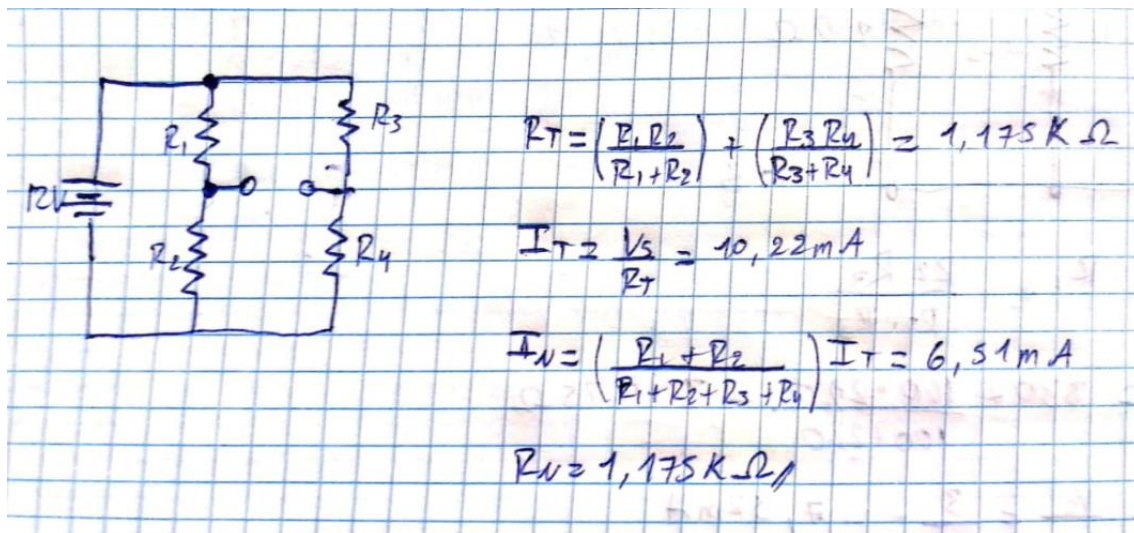 R1
R3
12V
R2
R4
RT = (R1 R2 / R1 + R2) + (R3 R4 / R3 + R4) = 1,175 K Ω
IT = Vs / RT = 10,22 mA
IN = (R1 + R2 / R1 + R2 + R3 + R4) IT = 6,51 mA
RN = 1,175 K Ω //